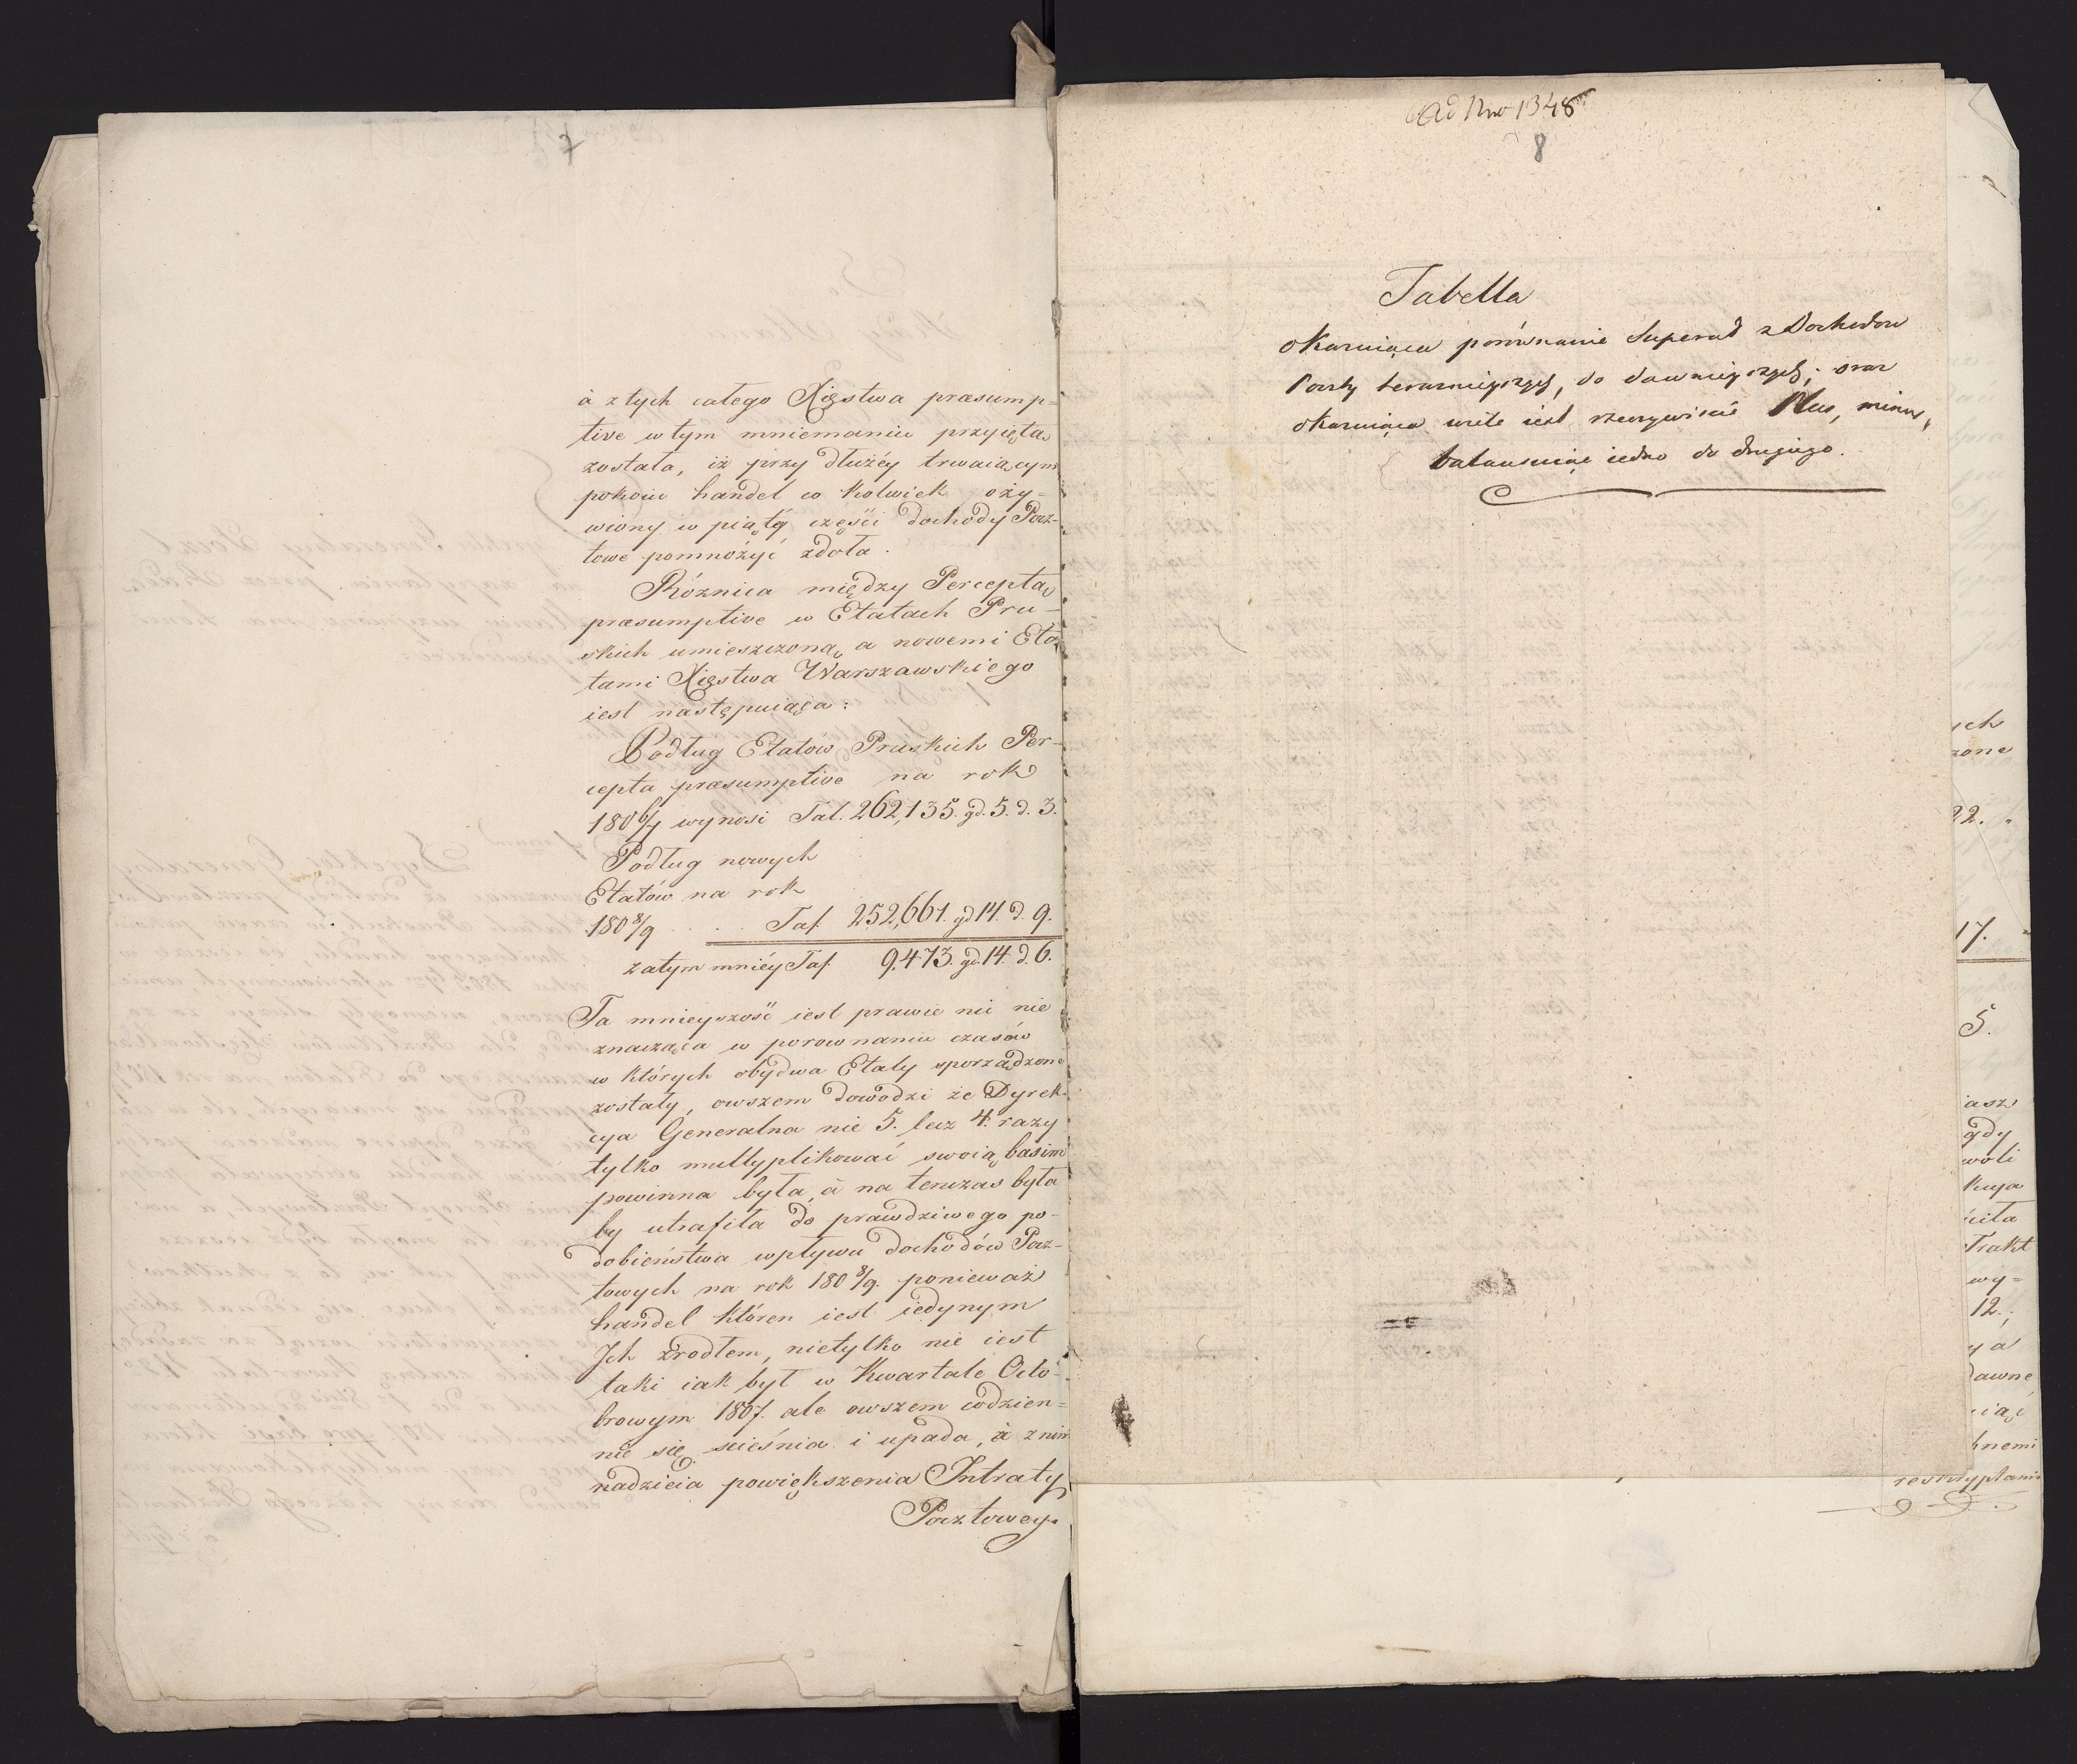 7
à z tych całego Xięstwa præsump=
tive w tym mniemaniu przyięta
została, iż przy dłużéy trwaiącym
pokoiu handel co kolwiek oży-
wiony w piątéy części dochody Pocz-
towe pomnożyć zdoła.
Róznica między Perceptą
præsumptive w Etatach Pru-
skich umieszczoną, a nowemi Eta-
tami Xięstwa Warszawskiego
iest następuiąca:
Podług Etatów Pruskich Per-
cepta præsumptive na rok
1806/7 wynosi Tal. 262,135. gd. 5. d. 3.
Podług nowych
Etatów na rok
1808/9 . . . Tal. 252,661. gd 14. d. 9.
zatym mniéy Tal. 9,473. gd. 14. d. 6.
Ta mnieyszość iest prawie nic nie
znacząca w porownaniu czasów
w których obydwa Etaty sporządzone
zostały, owszem dowodzi że Dyrek-
cya Generalna nie 5. lecz 4. razy
tylko multyplikować swoią basim
powinna była, à na tenczas była
by utrafiła do prawdziwego po-
dobieństwa wpływu dochodów Pocz-
towych na rok 1808/9. ponieważ
handel któren iest iedynym
Ich zrodłem, nietylko nie iest
taki iak był w Kwartale Octo-
browym 1807. ale owszem codzien=
nie się scieśnia i upada, à z nim
nadzieia powiększenia Intraty
Pocztowey.
Ad Nro 1348
8
Tabella
okazuiąca porównanie Superat z Dochodów
Poczty terazniejszych, do dawniejszych; oraz
okazuiąca wiele iest rzeczywiście Plus, minus,
balansuiąc iedno do drugiego.
ych
zone
22.
17.
5.
iasz
gdy
woli
kuya
iiła
Trakt
wy=
12.;
y a
dawne
iąć
hnemi
reskryptami